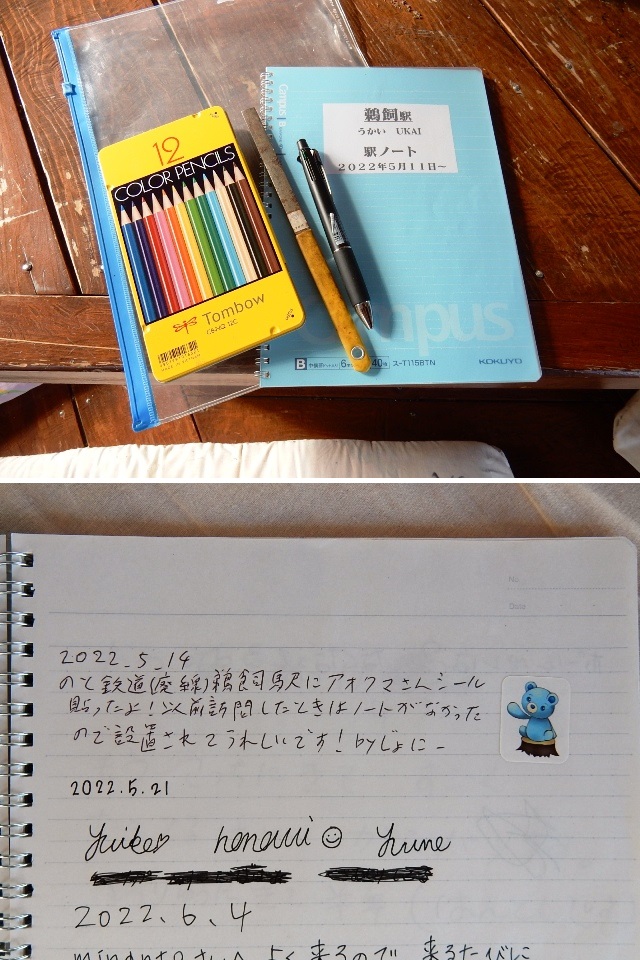 12
COLOR PENCILS
Tombow
CB-NQ 12C
Campus
鵜飼駅
うかい UKAI
駅ノート
2022年5月11日~
Campus
B
ス-T115BTN
KOKUYO
No.
Date
2022_5_14
のと鉄道(廃線)鵜飼駅にアオクマさんシール
貼ったよ!以前訪問したときはノートがなかった
ので設置されてうれしいです! byじょにー
2022.5.21
honami
2022.6.4
さんへ よく来るので 来るたびに